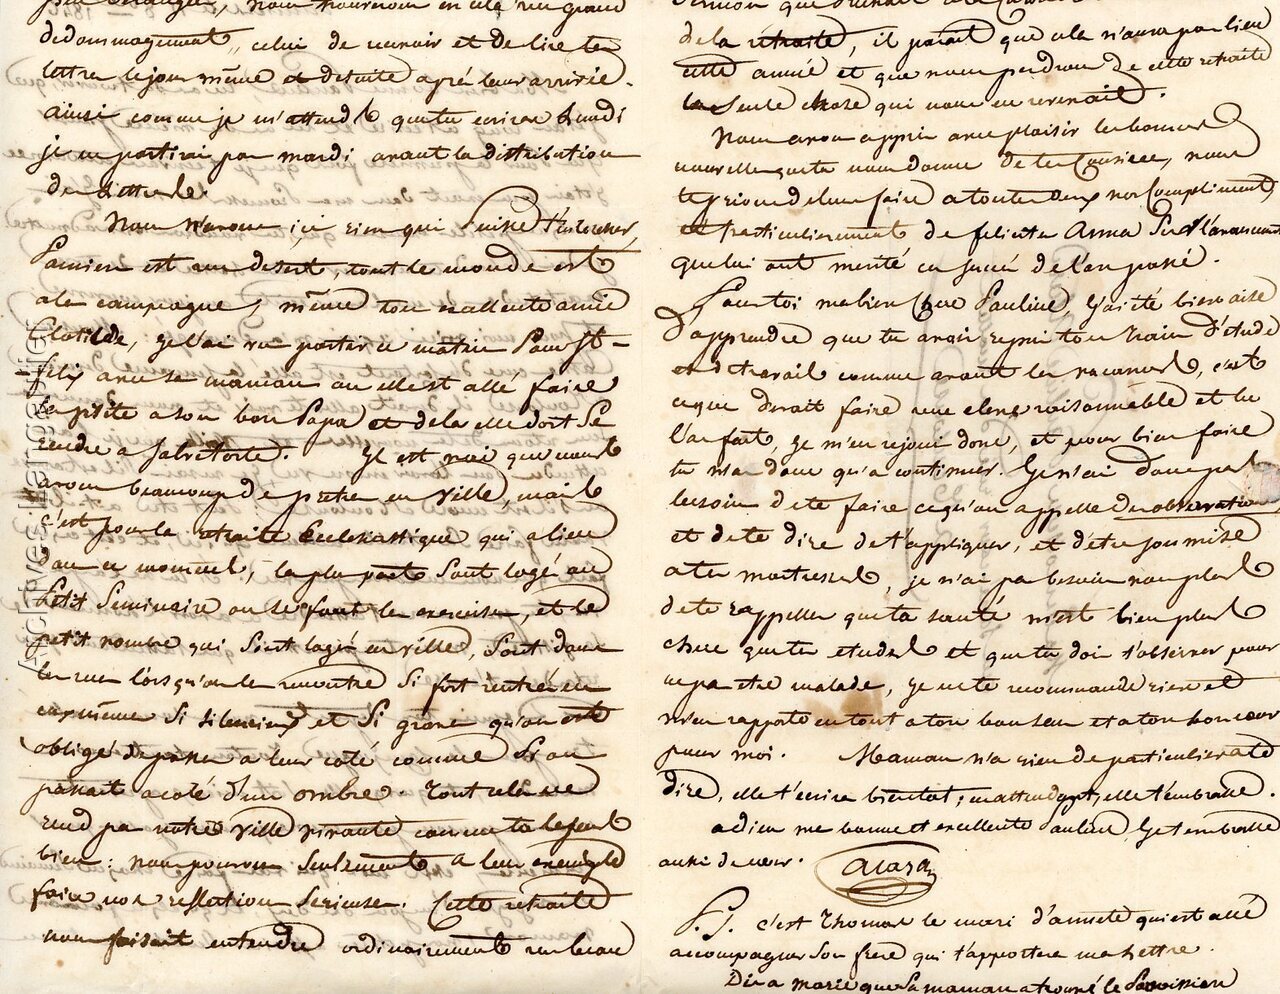 nous trouvons en cela un grand
dedommagement, celui de revoir et de lire tes
lettres le jour même et desuite aprés leur arrivée.
ainsi comme je m'attends que tu ecriras lundi
je ne partirai pas mardi avant la distribution
des lettres.
Nous n'avons ici rien qui puisse t'interesser,
Pamiers est un desert, tout le monde est
a la campagne, même ton excellente amie
Clotilde, je l'ai vu partir ce matin pour St-
felix avec sa maman ou elle est allé faire
la visite a son bon Papa et de la elle doit se
rendre a Jabretorte. Il est vrai que nous
avons beaucoup de pretres en ville, mais
c'est pour la retraite Ecclesiastique qui a lieu
dans ce moment, la plus part sont logés au
Petit Seminaire ou se font les exercises, et le
petit nombre qui sont logés en ville, sont dans
les rues lorsqu'on les rencontre si fort rentrés en
eux même si silencieux et si graves qu'on est
obligé de passer a leur coté comme si on
passait a coté d'une ombre. Tout cela ne
rend pas notre ville vivante comme tu le sens
bien: nous pouvons seulement a leur exemple
faire nos reflections serieuses. Cette retraite
nous faisait entendre ordinairement un beau
Sermon
de la retraite, il parait que cela n'aura pas lieu
cette année et que nous perdrons de cette retraite
la seule chose qui nous en revenait.
Nous avons appris avec plaisir les bonnes
nouvelles que tu nous donnes de tes Cousines, nous
te prions de leur faire a toutes deux nos Compliments,
et particulierement de feliciter Anna sur l'avancement
que lui ont merité ses succés de l'an passé.
Pour toi ma bien chere Pauline, j'ai été bien aise
d'apprendre que tu avais repris ton train d'etude
et de travail comme avant les vacances, c'est
ce que devait faire une eleve raisonnable et tu
l'as fait, je m'en rejouis donc, et pour bien faire
tu n'as donc qu'a continuer. Je n'ai donc pas
besoin de te faire ce qu'on appelle des observations
et de te dire de t'appliquer, et d'etre soumise
a tes maitresses, je n'ai pas besoin non plus
de te rappeller que ta santé m'est bien plus
chere que tes etudes et que tu dois t'observer pour
ne pas etre malade, je ne te recommande rien et
m'en rapporte en tout a ton bon sens et a ton bon cœur
pour moi. Maman n'a rien de particulier a te
dire, elle t'ecrira bientot; en attendant, elle t'embrasse.
adieu ma bonne et excellente Pauline, Je t'embrasse
aussi de cœur.
P.S. c'est Thomas le mari d'annete qui est allé
accompagner son frere qui t'apportera ma lettre.
Dis a marie que sa maman a trouvé le
Archives Manceslier